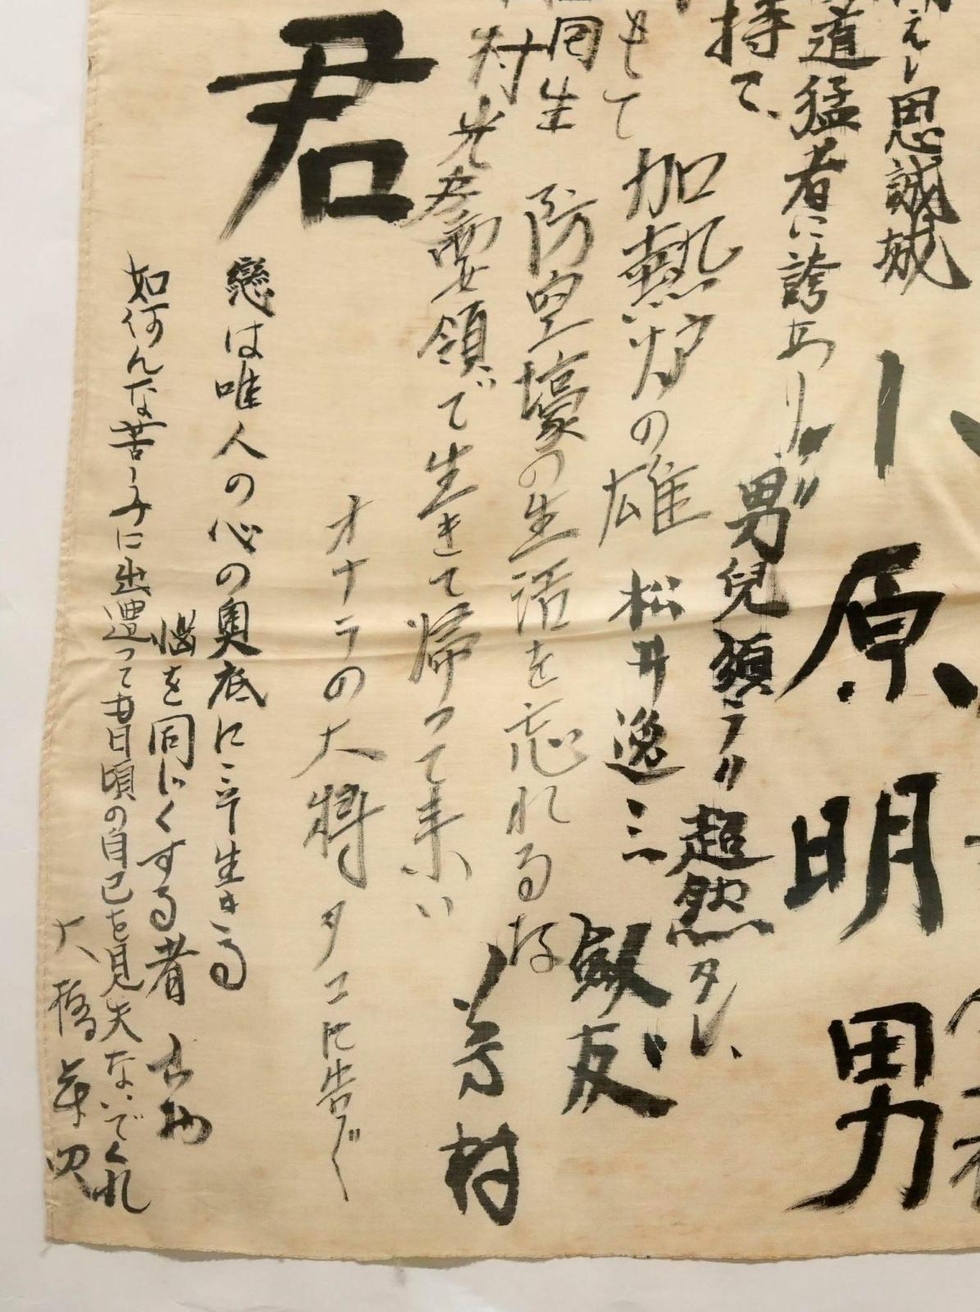 思誠
道猛者に誇あり〃
持て、
小原明男
男兒須ラク超然タレ、
もて
加熱炉の雄
松井逸三
同生
防空壕の生活を忘れるな
友
村
要領で生きて帰って来い
村
君
オナラの大将タコに告ぐ
戀は唯人の心の奥底にニ十生きる
悩を同じくする者
如何んな苦しみに出遭って昔日頃の自己を見失ないでくれ
大橋